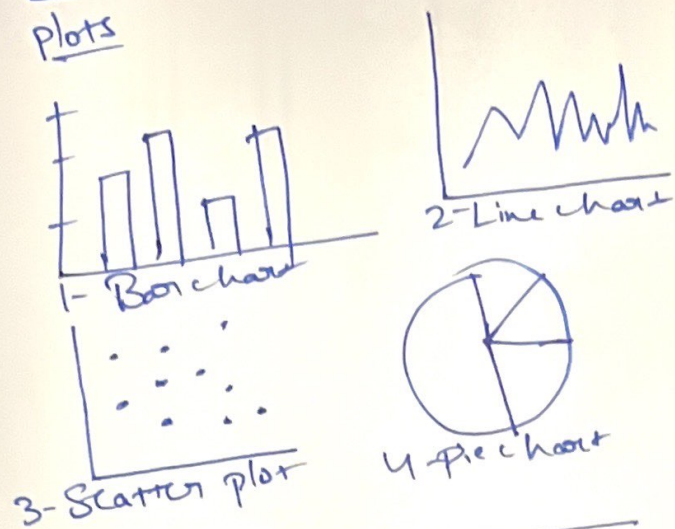 Plots
1- Bar chart
2-Line chart
3-Scatter plot
4-pie chart